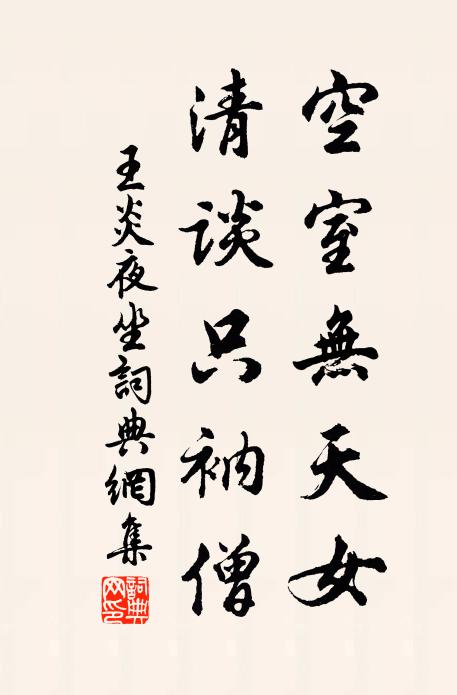 空室無天女
清談只衲僧
王炎夜坐詞典網集
詞典網印